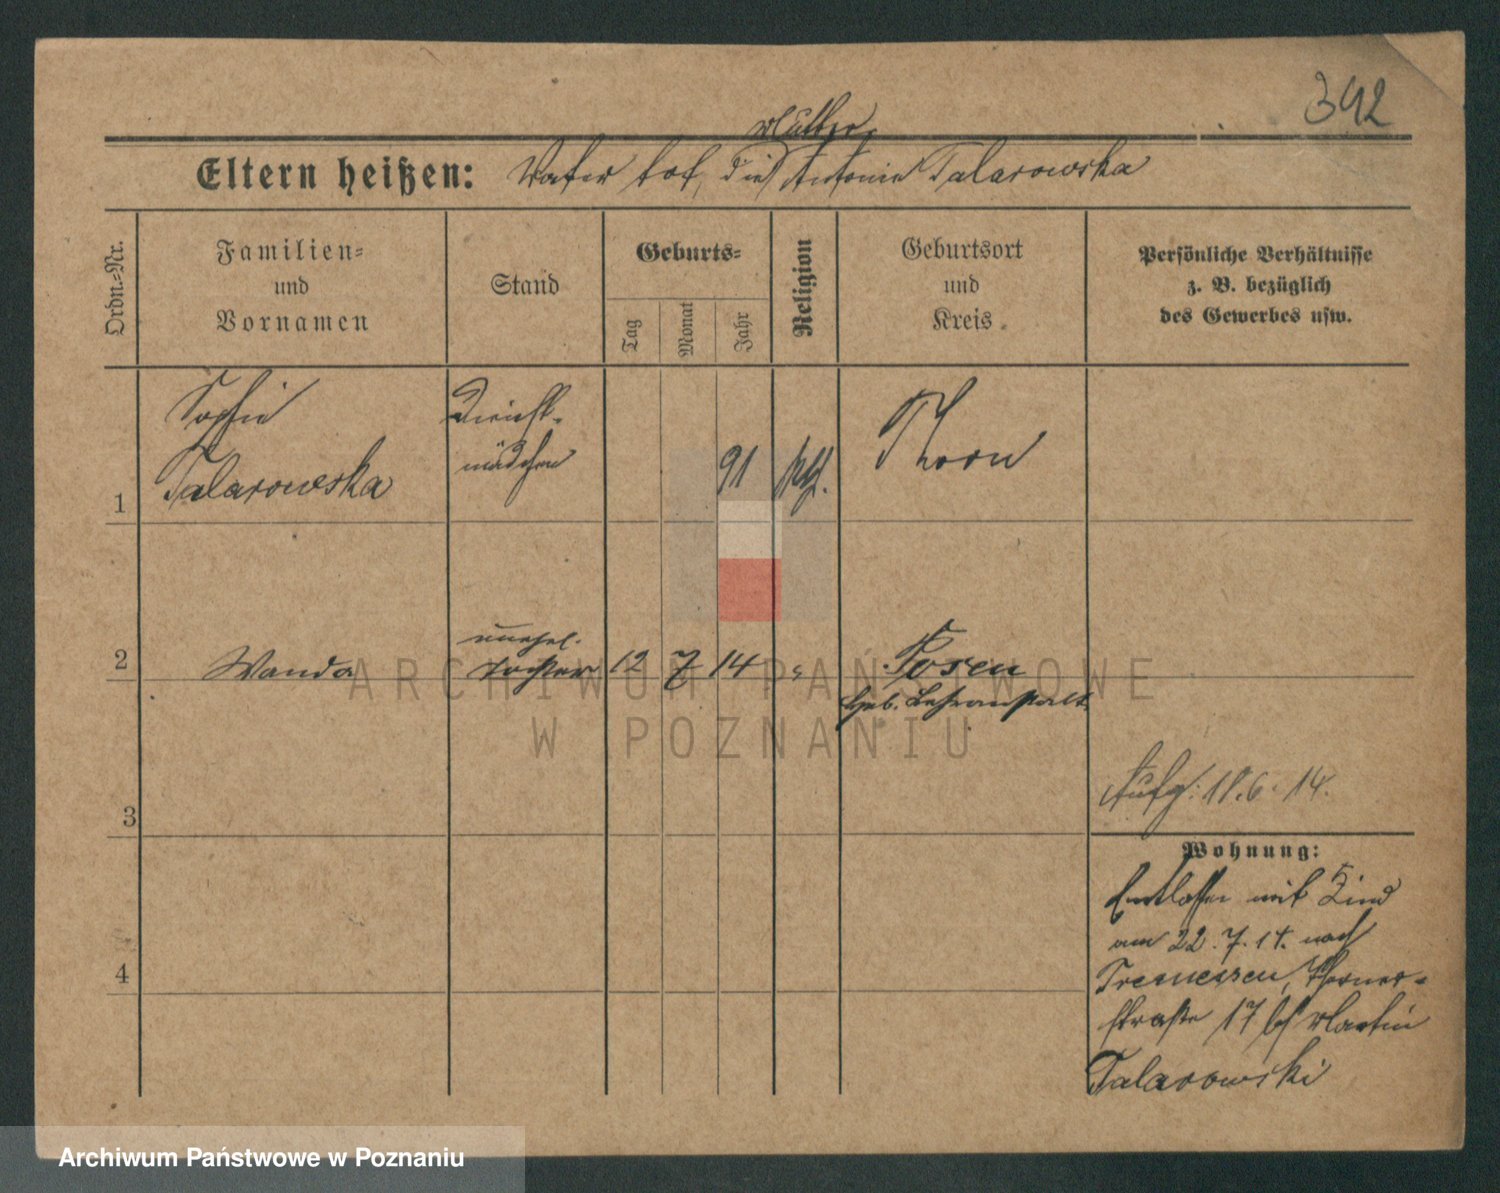 342
Mutter
Eltern heißen: Vater tot, die Antonie Talarowska
Ordn.-Nr.
Familien-
und
Vornamen
Stand
Geburts-
Tag
Monat
Jahr
Religion
Geburtsort
und
Kreis
Persönliche Verhältnisse
z. B. bezüglich
des Gewerbes usw.
Sophie
Talarowska
Dienst-
mädchen
91
kth.
Thorn
1
unehel.
2 Wanda Tochter 12 7 14 " Posen
Heb. Lehranstalt
Aufg: 18.6.14.
3
Wohnung:
Entlassen mit Kind
am 22.7.14. nach
Tremessen, Thorner-
straße 17 bei Martin
Talarowski
4
ARCHIWUM PAŃSTWOWE
W POZNANIU
Archiwum Państwowe w Poznaniu